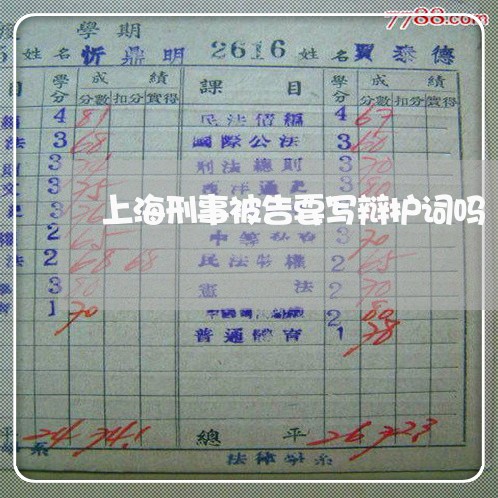 7788.com
學期
5 姓名 忻鼎明 2616 姓名 賈泰德
目 學分 成績 課目 學分 成績
分數 扣分 實得 分數 扣分 實得
4 81 民法債編 4 67
法 3 68 國際公法 3 60
則 3 刑法總則 3 70
文 3 75 西洋通史
上海刑事被告要写辩护词吗
2 65 中等 3 70
法 2 68 68 民法物權 2 65
3 80 憲法 2 70
育 1 70 中國 2 80
普通體育 1 78
平 24 74.1 總平 26 72.3
系 法律學系